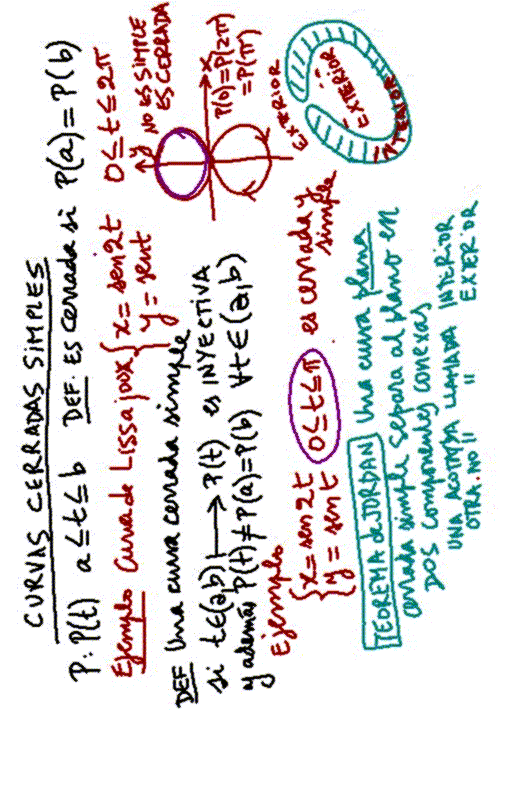 CURVAS CERRADAS SIMPLES
P: P(t) a≤t≤b DEF. ES cerrada si P(a)=P(b)
Ejemplo Curva de Lissajoux { x=sen2t 0≤t≤2π
y=sent
y NO ES SIMPLE
ES CERRADA
x
P(0)=P(2π)
=P(π)
DEF Una curva cerrada simple
si t∈(a,b) ↦ P(t) es INYECTIVA
y además P(t)≠P(a)=P(b) ∀t∈(a,b)
Ejemplo
{ x=sen2t 0≤t≤π es cerrada y
y=sent simple
EXTERIOR
EXTERIOR
INTERIOR
TEOREMA de JORDAN Una curva plana
cerrada simple separa al plano en
DOS componentes conexas
UNA ACOTADA LLAMADA INTERIOR
OTRA NO " " EXTERIOR